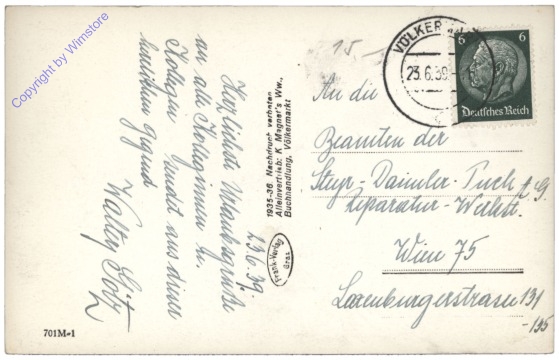 Copyright by Winstore
15,-
Herzlichste Urlaubsgrüße
an alle Kolleginnen u.
Kollegen sendet aus dieser
herrlichen Gegend
Walter Götz
23.6.39.
1935-36 Nachdruck verboten
Alleinvertrieb: K. Magnet's Ww.,
Buchhandlung, Völkermarkt
Frank-Verlag
Graz
701M-1
VÖLKERM
23.6.39
6 6
Deutsches Reich
An die
Beamten der
Steyr-Daimler-Puch A.G.
Reparatur-Werkst.
Wien 75
Laxenburgerstrasse 131
-135